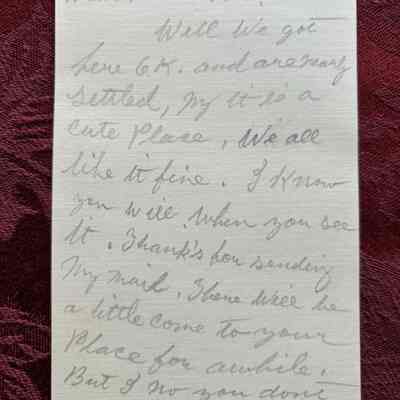 Well We got
here O.K. and are nearly
settled, My it is a
cute Place, We all
like it fine. I Know
you will when you see
It. Thank's for sending
My mail. There Will be
a little come to your
Place for awhile.
But I no you don't